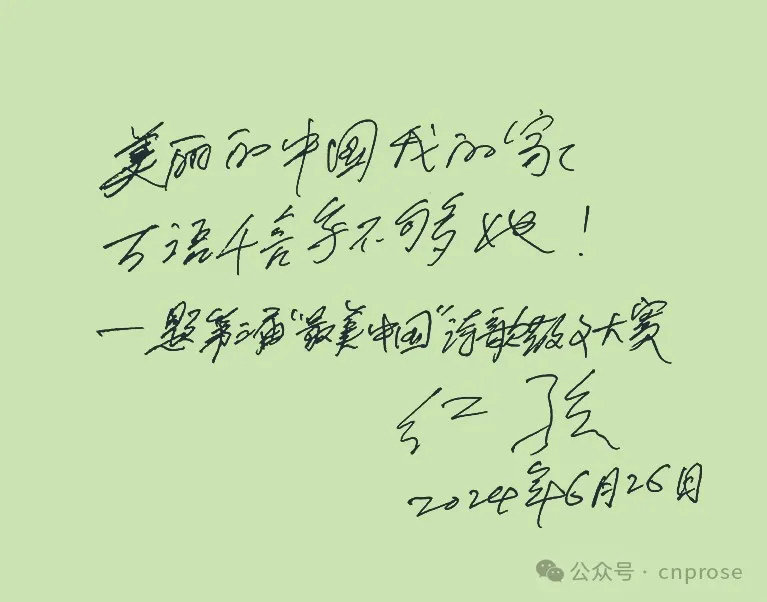 美丽的中国我的家,
万语千言写不够她!
—题第二届“最美中国”诗歌散文大赛
红孩
2024年6月26日
公众号 · cnprose